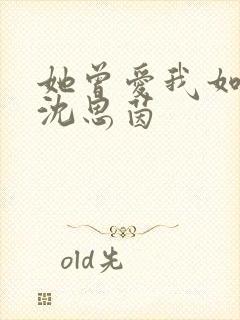 她曾爱我如
沈思茵
old先